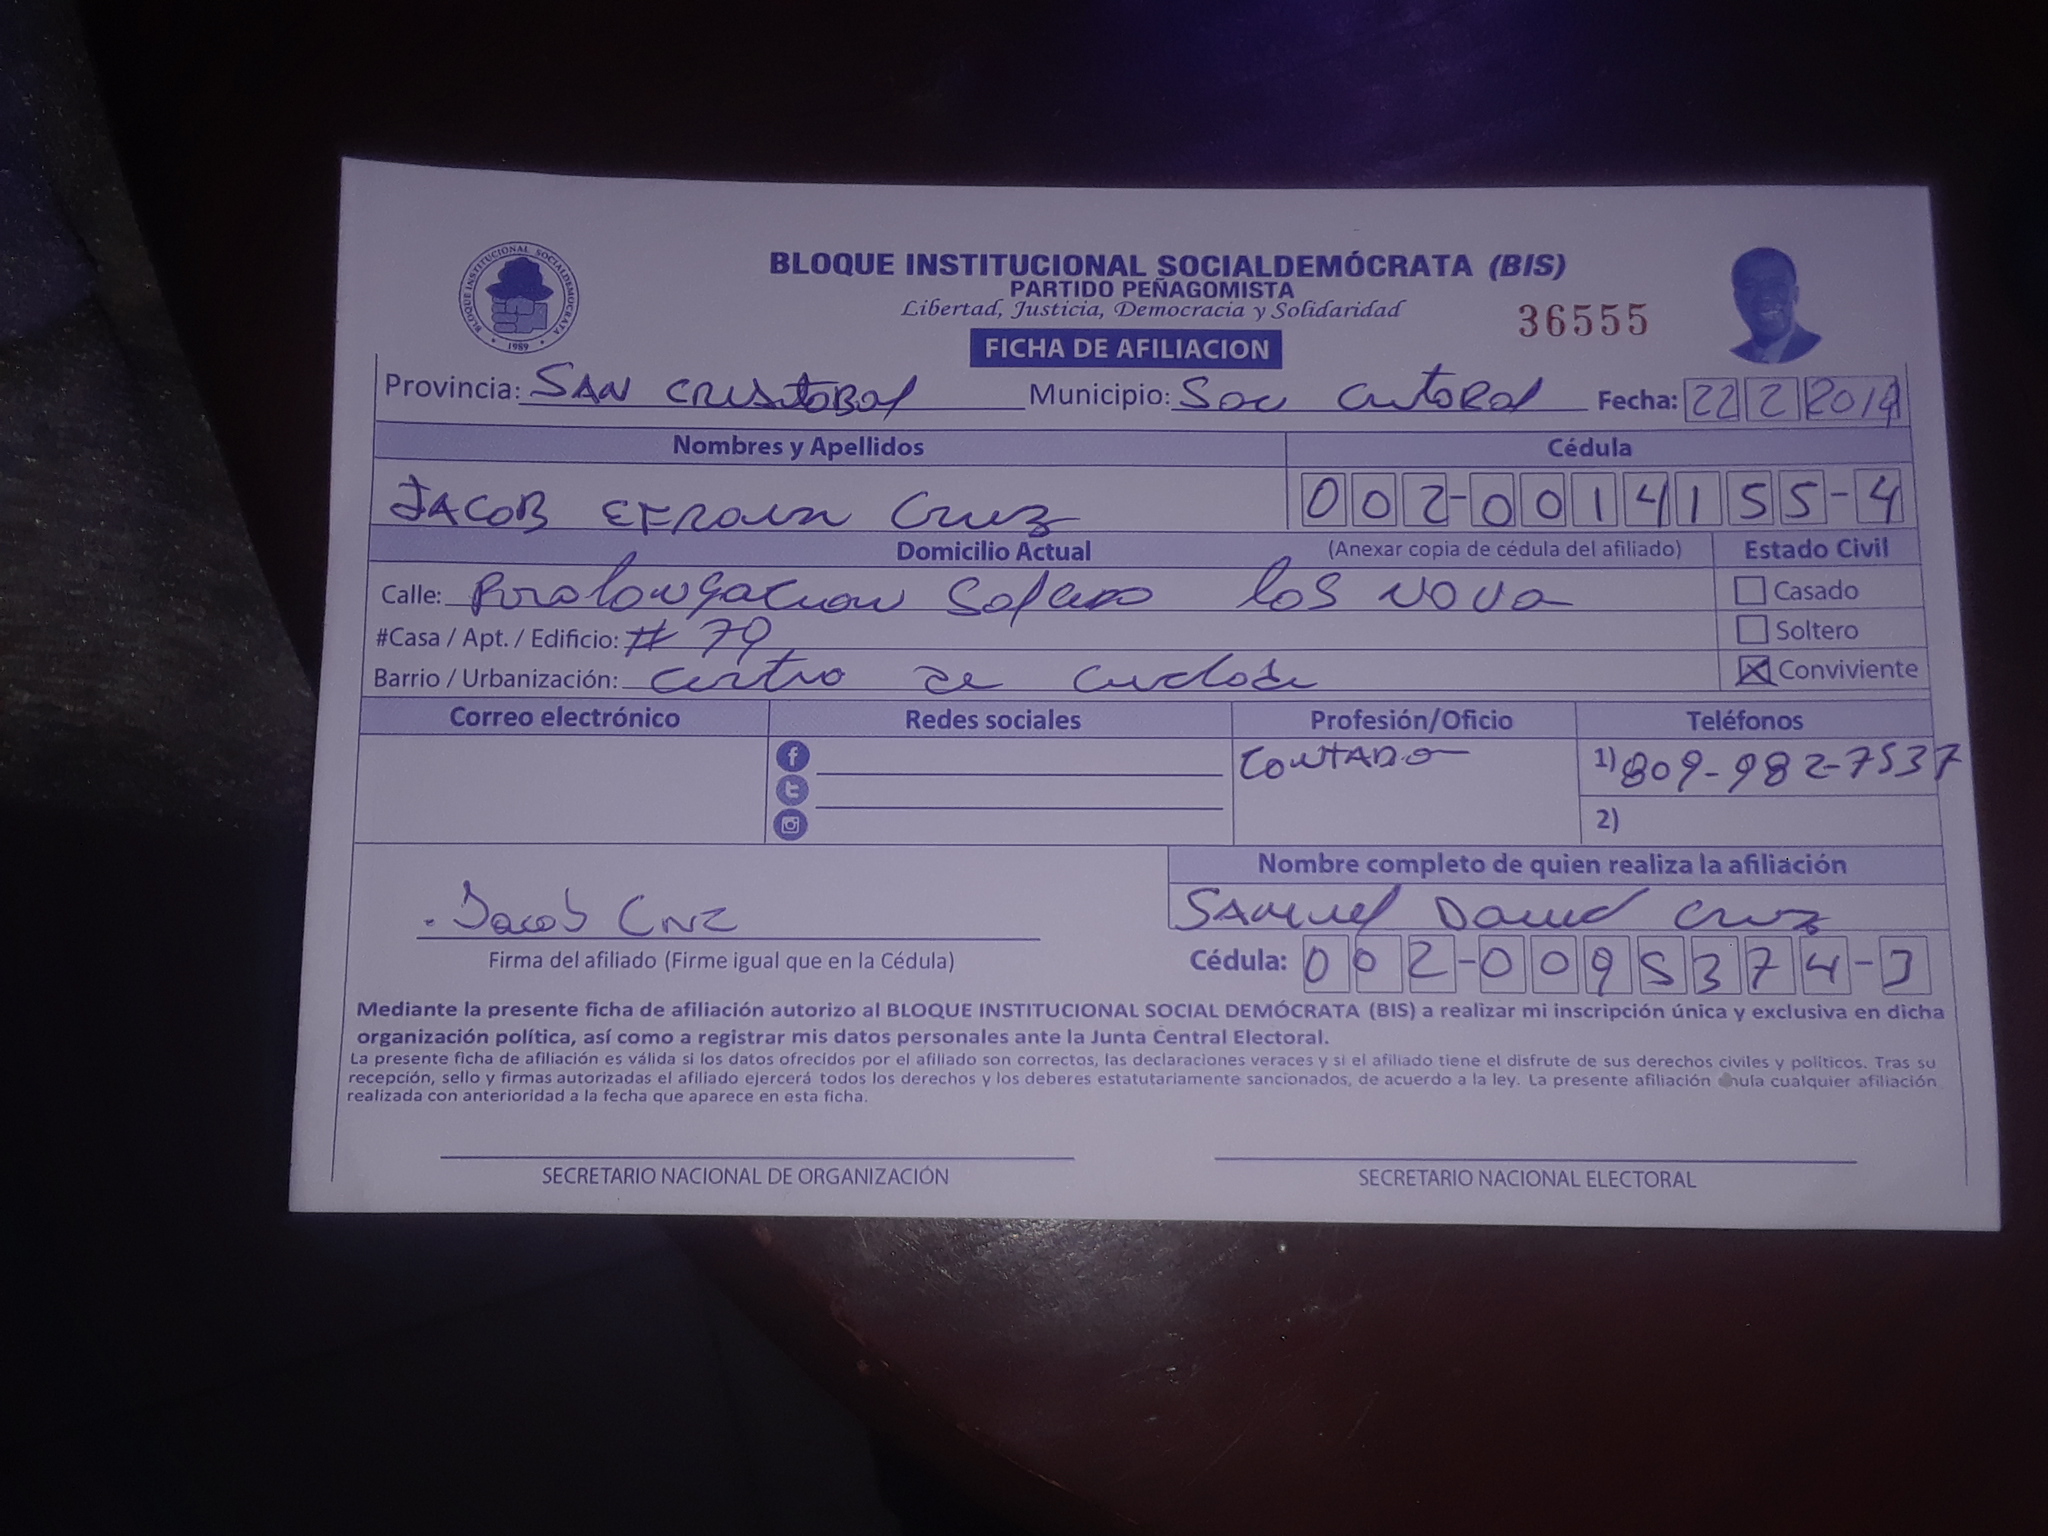 BLOQUE INSTITUCIONAL SOCIALDEMOCRATA
1989
BLOQUE INSTITUCIONAL SOCIALDEMÓCRATA (BIS)
PARTIDO PEÑAGOMISTA
Libertad, Justicia, Democracia y Solidaridad
36555
FICHA DE AFILIACION
Provincia: SAN CRISTOBAL Municipio: San Cristobal Fecha: 22 2 2019
Nombres y Apellidos Cédula
JACOB EFRAIN CRUZ 002-0014155-4
Domicilio Actual (Anexar copia de cédula del afiliado) Estado Civil
Calle: Prolongacion los nova Casado
#Casa / Apt. / Edificio: # 79 Soltero
Barrio / Urbanización: centro de Conviviente
Correo electrónico Redes sociales Profesión/Oficio Teléfonos
CONTADO 1) 809-982-7537
2)
Nombre completo de quien realiza la afiliación
Jacob Cruz SAMUEL David Cruz
Firma del afiliado (Firme igual que en la Cédula) Cédula: 002-0095374-3
Mediante la presente ficha de afiliación autorizo al BLOQUE INSTITUCIONAL SOCIAL DEMÓCRATA (BIS) a realizar mi inscripción única y exclusiva en dicha
organización política, así como a registrar mis datos personales ante la Junta Central Electoral.
La presente ficha de afiliación es válida si los datos ofrecidos por el afiliado son correctos, las declaraciones veraces y si el afiliado tiene el disfrute de sus derechos civiles y políticos. Tras su
recepción, sello y firmas autorizadas el afiliado ejercerá todos los derechos y los deberes estatutariamente sancionados, de acuerdo a la ley. La presente afiliación anula cualquier afiliación
realizada con anterioridad a la fecha que aparece en esta ficha.
SECRETARIO NACIONAL DE ORGANIZACIÓN SECRETARIO NACIONAL ELECTORAL